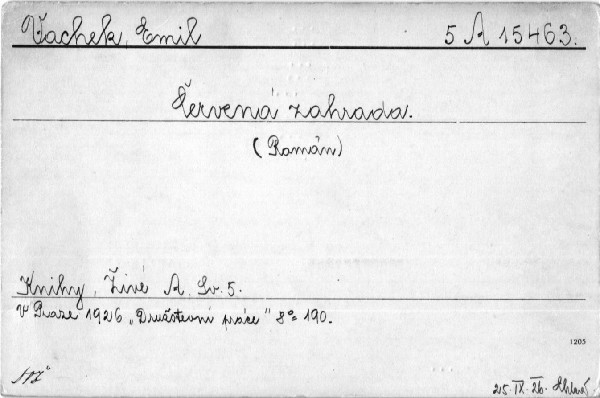 Vachek, Emil 5 A 15463.
Červená zahrada.
(Román)
Knihy Živé A. Sv. 5.
V Praze 1926 „Družstevní práce" 8° 190.
1205
25. IX. 26.